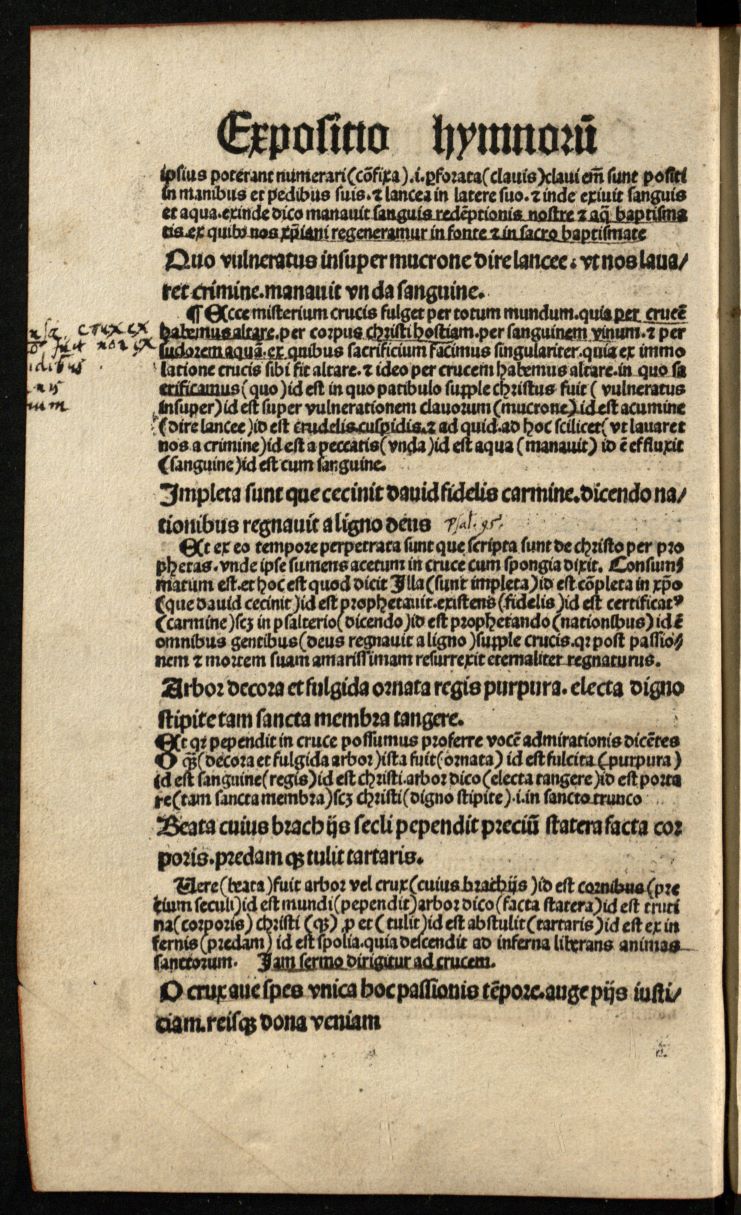 Expositio hymnorū
ipsius poterant numerari (cōfixa) .i. ꝑforata (clauis) claui em̄ sunt positi
in manibus et pedibus suis. ⁊ lancea in latere suo. ⁊ inde exiuit sanguis
et aqua. exinde dico manauit sanguis redēptionis nostre ⁊ aq̄ baptisma
tis. ex quibꝫ nos xp̄iani regeneramur in fonte ⁊ in sacro baptismate
Quo vulneratus insuper mucrone dire lancee : vt nos laua/
ret crimine. manauit vnda sanguine.
¶ Ecce misterium crucis fulget per totum mundum. quia per crucē
habemus altare. per corpus christi hostiam. per sanguinem vinum. ⁊ per
sudorem aquā. ex quibus sacrificium facimus singulariter. quia ex immo
latione crucis sibi fit altare. ⁊ ideo per crucem habemus altare. in quo sa
crificamus (quo) id est in quo patibulo supple christus fuit (vulneratus
insuper) id est super vulnerationem clauorum (mucrone) id est acumine
(dire lancee) id est crudelis cuspidis. ⁊ ad quid. ad hoc scilicet (vt lauaret
nos a crimine) id est a peccatis (vnda) id est aqua (manauit) id ē effluxit
(sanguine) id est cum sanguine.
crux ex
fuit non ex
Impleta sunt que cecinit dauid fidelis carmine. dicendo na/
tionibus regnauit a ligno deus psal. 95.
Et ex eo tempore perpetrata sunt que scripta sunt de christo per pro
phetas. vnde ipse sumens acetum in cruce cum spongia dixit. Consum/
matum est. et hoc est quod dicit Illa (sunt impleta) id est cōpleta in xp̄o
(que dauid cecinit) id est prophetauit. existens (fidelis) id est certificatꝰ
(carmine) scꝫ in psalterio (dicendo) id est prophetando (nationibus) id ē
omnibus gentibus (deus regnauit a ligno) supple crucis. qꝛ post passio/
nem ⁊ mortem suam amarissimam resurrexit eternaliter regnaturus.
Arbor decora et fulgida ornata regis purpura. electa digno
stipite tam sancta membra tangere.
Et qꝛ pependit in cruce possumus proferre vocē admirationis dicētes
O q̄ꝫ (decora et fulgida arbor) ista fuit (ornata) id est fulcita (purpura)
id est sanguine (regis) id est christi. arbor dico (electa tangere) id est porta
re (tam sancta membra) scꝫ christi (digno stipite) .i. in sancto trunco
Beata cuius brachijs secli pependit preciū statera facta cor
poris. predam qꝫ tulit tartaris.
Uere (beata) fuit arbor vel crux (cuius brachijs) id est cornibus (pre
tium seculi) id est mundi (pependit) arbor dico (facta statera) id est truti
na (corporis) christi (qꝫ) ꝓ et (tulit) id est abstulit (tartaris) id est ex in
fernis (predam) id est spolia. quia descendit ad inferna liberans animas
sanctorum. Iam sermo dirigitur ad crucem.
O crux aue spes vnica hoc passionis tēpore. auge pijs iusti/
ciam. reisqꝫ dona veniam